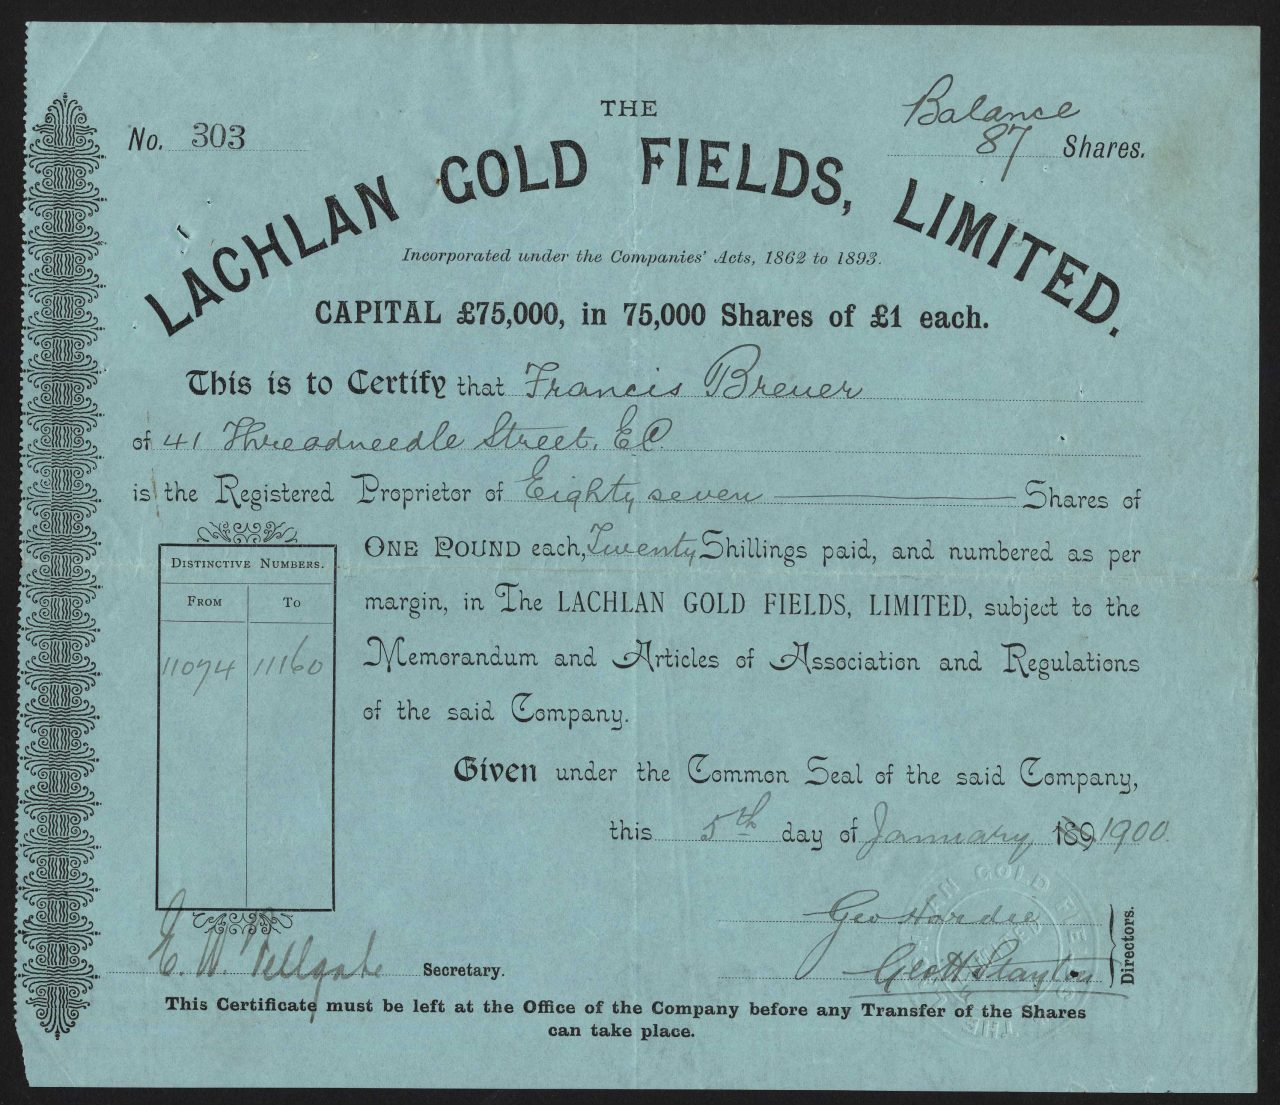 No. 303
THE
Balance
87 Shares.
LACHLAN GOLD FIELDS, LIMITED.
Incorporated under the Companies' Acts, 1862 to 1893.
CAPITAL £75,000, in 75,000 Shares of £1 each.
This is to Certify that Francis Breuer
of 41 Threadneedle Street, EC.
is the Registered Proprietor of Eighty seven Shares of
ONE POUND each, Twenty Shillings paid, and numbered as per
margin, in The LACHLAN GOLD FIELDS, LIMITED, subject to the
Memorandum and Articles of Association and Regulations
of the said Company.
DISTINCTIVE NUMBERS.
FROM TO
11074 11160
Given under the Common Seal of the said Company,
this 5th day of January 189 1900.
Geo Hardie
Geo H Slayter
Directors.
E. W. Tellgate Secretary.
This Certificate must be left at the Office of the Company before any Transfer of the Shares
can take place.